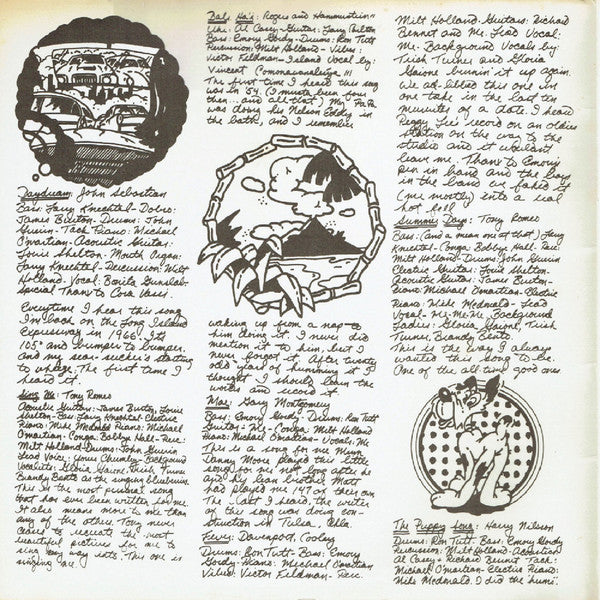 Daydream: John Sebastian
Bass: Larry Knechtel - Dobro:
James Burton - Drums: John
Guerin - Tack Piano: Michael
Omartian - Acoustic Guitar:
Louie Shelton - Mouth Organ:
Larry Knechtel - Percussion: Milt
Holland - Vocal:
Special Thanks to Cora Vassi.
Everytime I hear this song
I'm back on the Long Island
Expressway in 1966. It's
105° and bumper to bumper
and my seer-sucker's starting
to unkage. The first time I
heard it.
Sing Me: Tony Romeo
Acoustic Guitars: James Burton, Louie
Shelton - Bass: Larry Knechtel Electric
Piano: Mike McDonald Piano: Michael
Omartian - Conga: Bobbye Hall - Perc:
Milt Holland - Drums: John Guerin
Lead Voice: Background
Vocalists: Gloria Trish Turner
Brandy as the singing bluebirds.
This is the most personal song
that has ever been written for me.
It also means more to me than
any of the others. Tony never
ceases to recreate the most
beautiful pictures for me to
sing my way into. This one is
singing me.
Bali Ha'i: Rogers and Hammerstein
Uke: Al Casey - Guitar: Larry
Bass: Emory Gordy - Drums: Ron Tutt
Percussion: Milt Holland - Vibes:
Victor Feldman - Island Vocal by
Vincent !!!
The first time I heard this song
was in '54. (I must've been given
then... and all that) My Pa Pa
was doing his Nelson Eddy in
the bath, and I remember
waking up from a nap to
him doing it. I never did
mention it to him, but I
never forgot it. After twenty
odd years of humming it I
thought I should learn the
words and record it
Mae: Gary Montgomery
Bass: Emory Gordy - Drums: Ron Tutt
Guitar - Me - Conga: Milt Holland
Piano: Michael Omartian - Vocals: Me
This is a song for me Menn
Danny Moore played this little
song for me not long after he
and his lean brother Matt
had played me 147 of their own.
The last I heard, the writer
of this song was doing con-
struction in Tulsa, Okla.
Fever: Davenport, Cooley
Drums: Ron Tutt - Bass: Emory
Gordy - Piano: Michael Omartian
Vibes: Victor Feldman - Perc:
Milt Holland - Guitars: Richard
Bennet and Me: Lead Vocal:
Me: Background Vocals by:
Trish Turner and Gloria
burnin' it up again.
We ad-libbed this one in
one take in the last ten
minutes of a date. I heard
Peggy Lee's record on an oldies
station on the way to the
studio and it wouldn't
leave me. Thanx to Emory's
pen in hand and the boys
in the band we faked it
(me mostly) into a real
hot roll.
Summer Days: Tony Romeo
Bass: (and a mean one at that) Larry
Knechtel - Conga: Bobbye Hall - Perc:
Milt Holland - Drums: John Guerin
Electric Guitar: Louie Shelton -
Acoustic Guitar: James Burton -
Piano: Michael Omartian - Electric
Piano: Mike McDonald - Lead
Vocal - Me - Me - Me. Background
Ladies: Gloria Trish
Turner, Brandy
This is the way I always
wanted this song to be.
One of the all time good ones
The Puppy Song: Harry Nilsson
Drums: Ron Tutt - Bass: Emory Gordy
Percussion: Milt Holland - Acoustic:
Al Casey - Richard Bennett Tack:
Michael Omartian - Electric Piano:
Mike McDonald. I did the 'hums'.